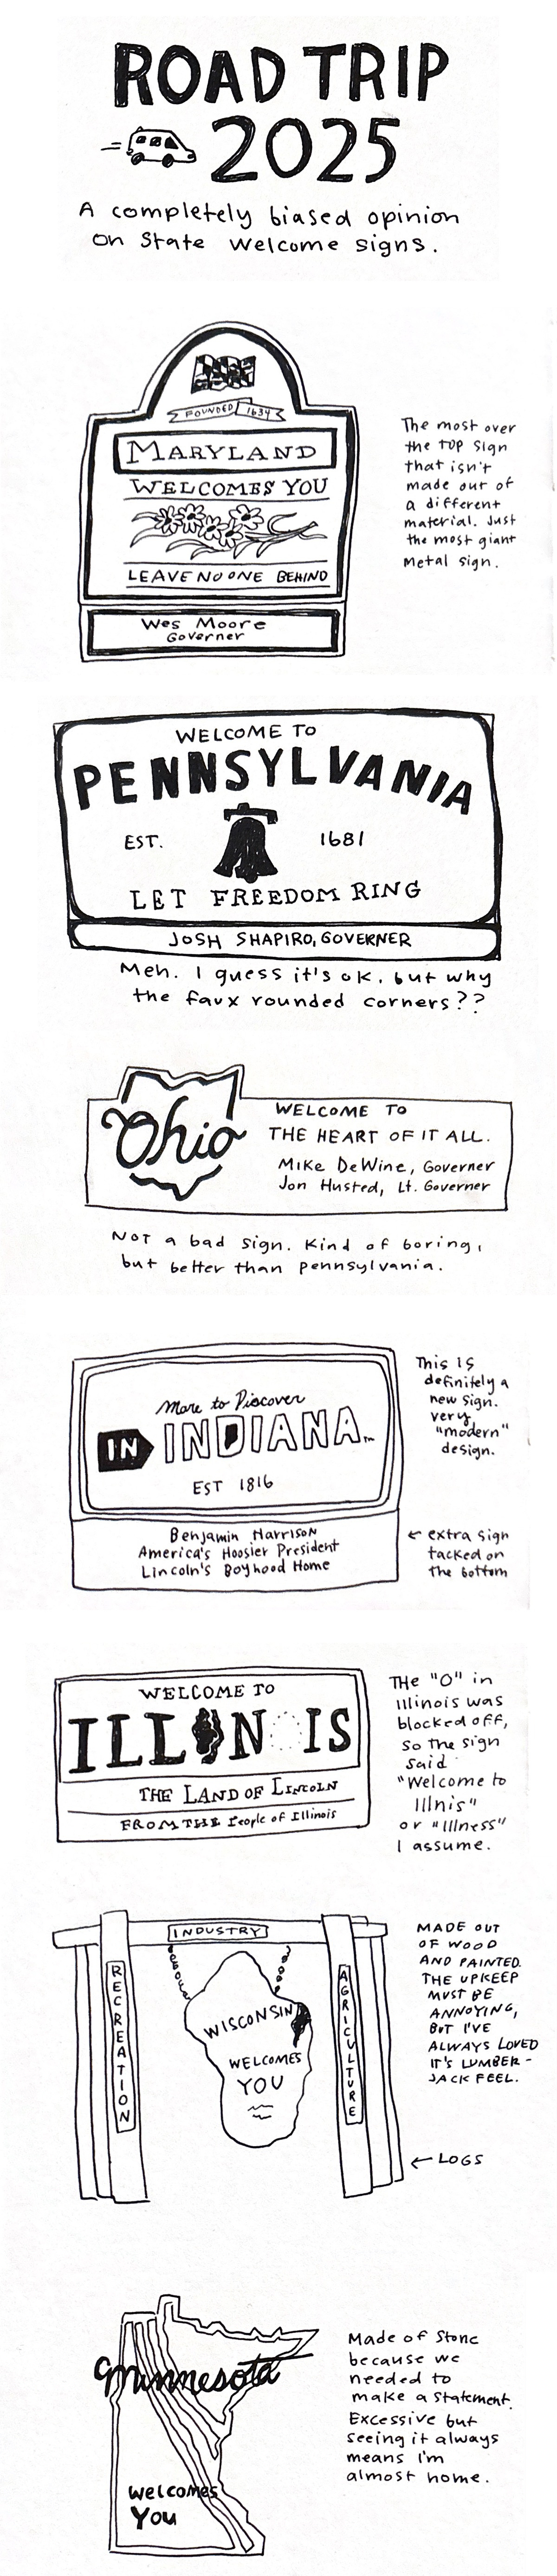 ROAD TRIP
2025
A completely biased opinion
on State welcome signs.
FOUNDED 1634
MARYLAND
WELCOMES YOU
LEAVE NO ONE BEHIND
Wes Moore
Governer
The most over
the top sign
that isn't
made out of
a different
material. Just
the most giant
metal sign.
WELCOME TO
PENNSYLVANIA
EST. 1681
LET FREEDOM RING
JOSH SHAPIRO, GOVERNER
Meh. I guess it's ok, but why
the faux rounded corners??
Ohio
WELCOME TO
THE HEART OF IT ALL.
Mike DeWine, Governer
Jon Husted, Lt. Governer
Not a bad sign. Kind of boring,
but better than pennsylvania.
More to Discover
IN INDIANA™
EST 1816
Benjamin Harrison
America's Hoosier President
Lincoln's Boyhood Home
This is
definitely a
new sign.
very
"modern"
design.
← extra sign
tacked on
the bottom
WELCOME TO
ILLINOIS
THE LAND OF LINCOLN
FROM THE People of Illinois
THe "O" in
Illinois was
blocked off,
so the sign
said
"Welcome to
Illnis"
or "Illness"
I assume.
INDUSTRY
RECREATION
WISCONSIN
WELCOMES
YOU
AGRICULTURE
MADE OUT
OF WOOD
AND PAINTED.
THE UPKEEP
MUST BE
ANNOYING,
BUT I'VE
ALWAYS LOVED
IT'S LUMBER-
JACK FEEL.
← LOGS
Minnesota
welcomes
You
Made of Stone
because we
needed to
make a statement.
Excessive but
seeing it always
means I'm
almost home.